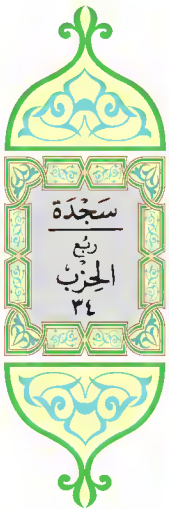 سَجْدَة
رُبُع
الحِزْبْ
٣٤